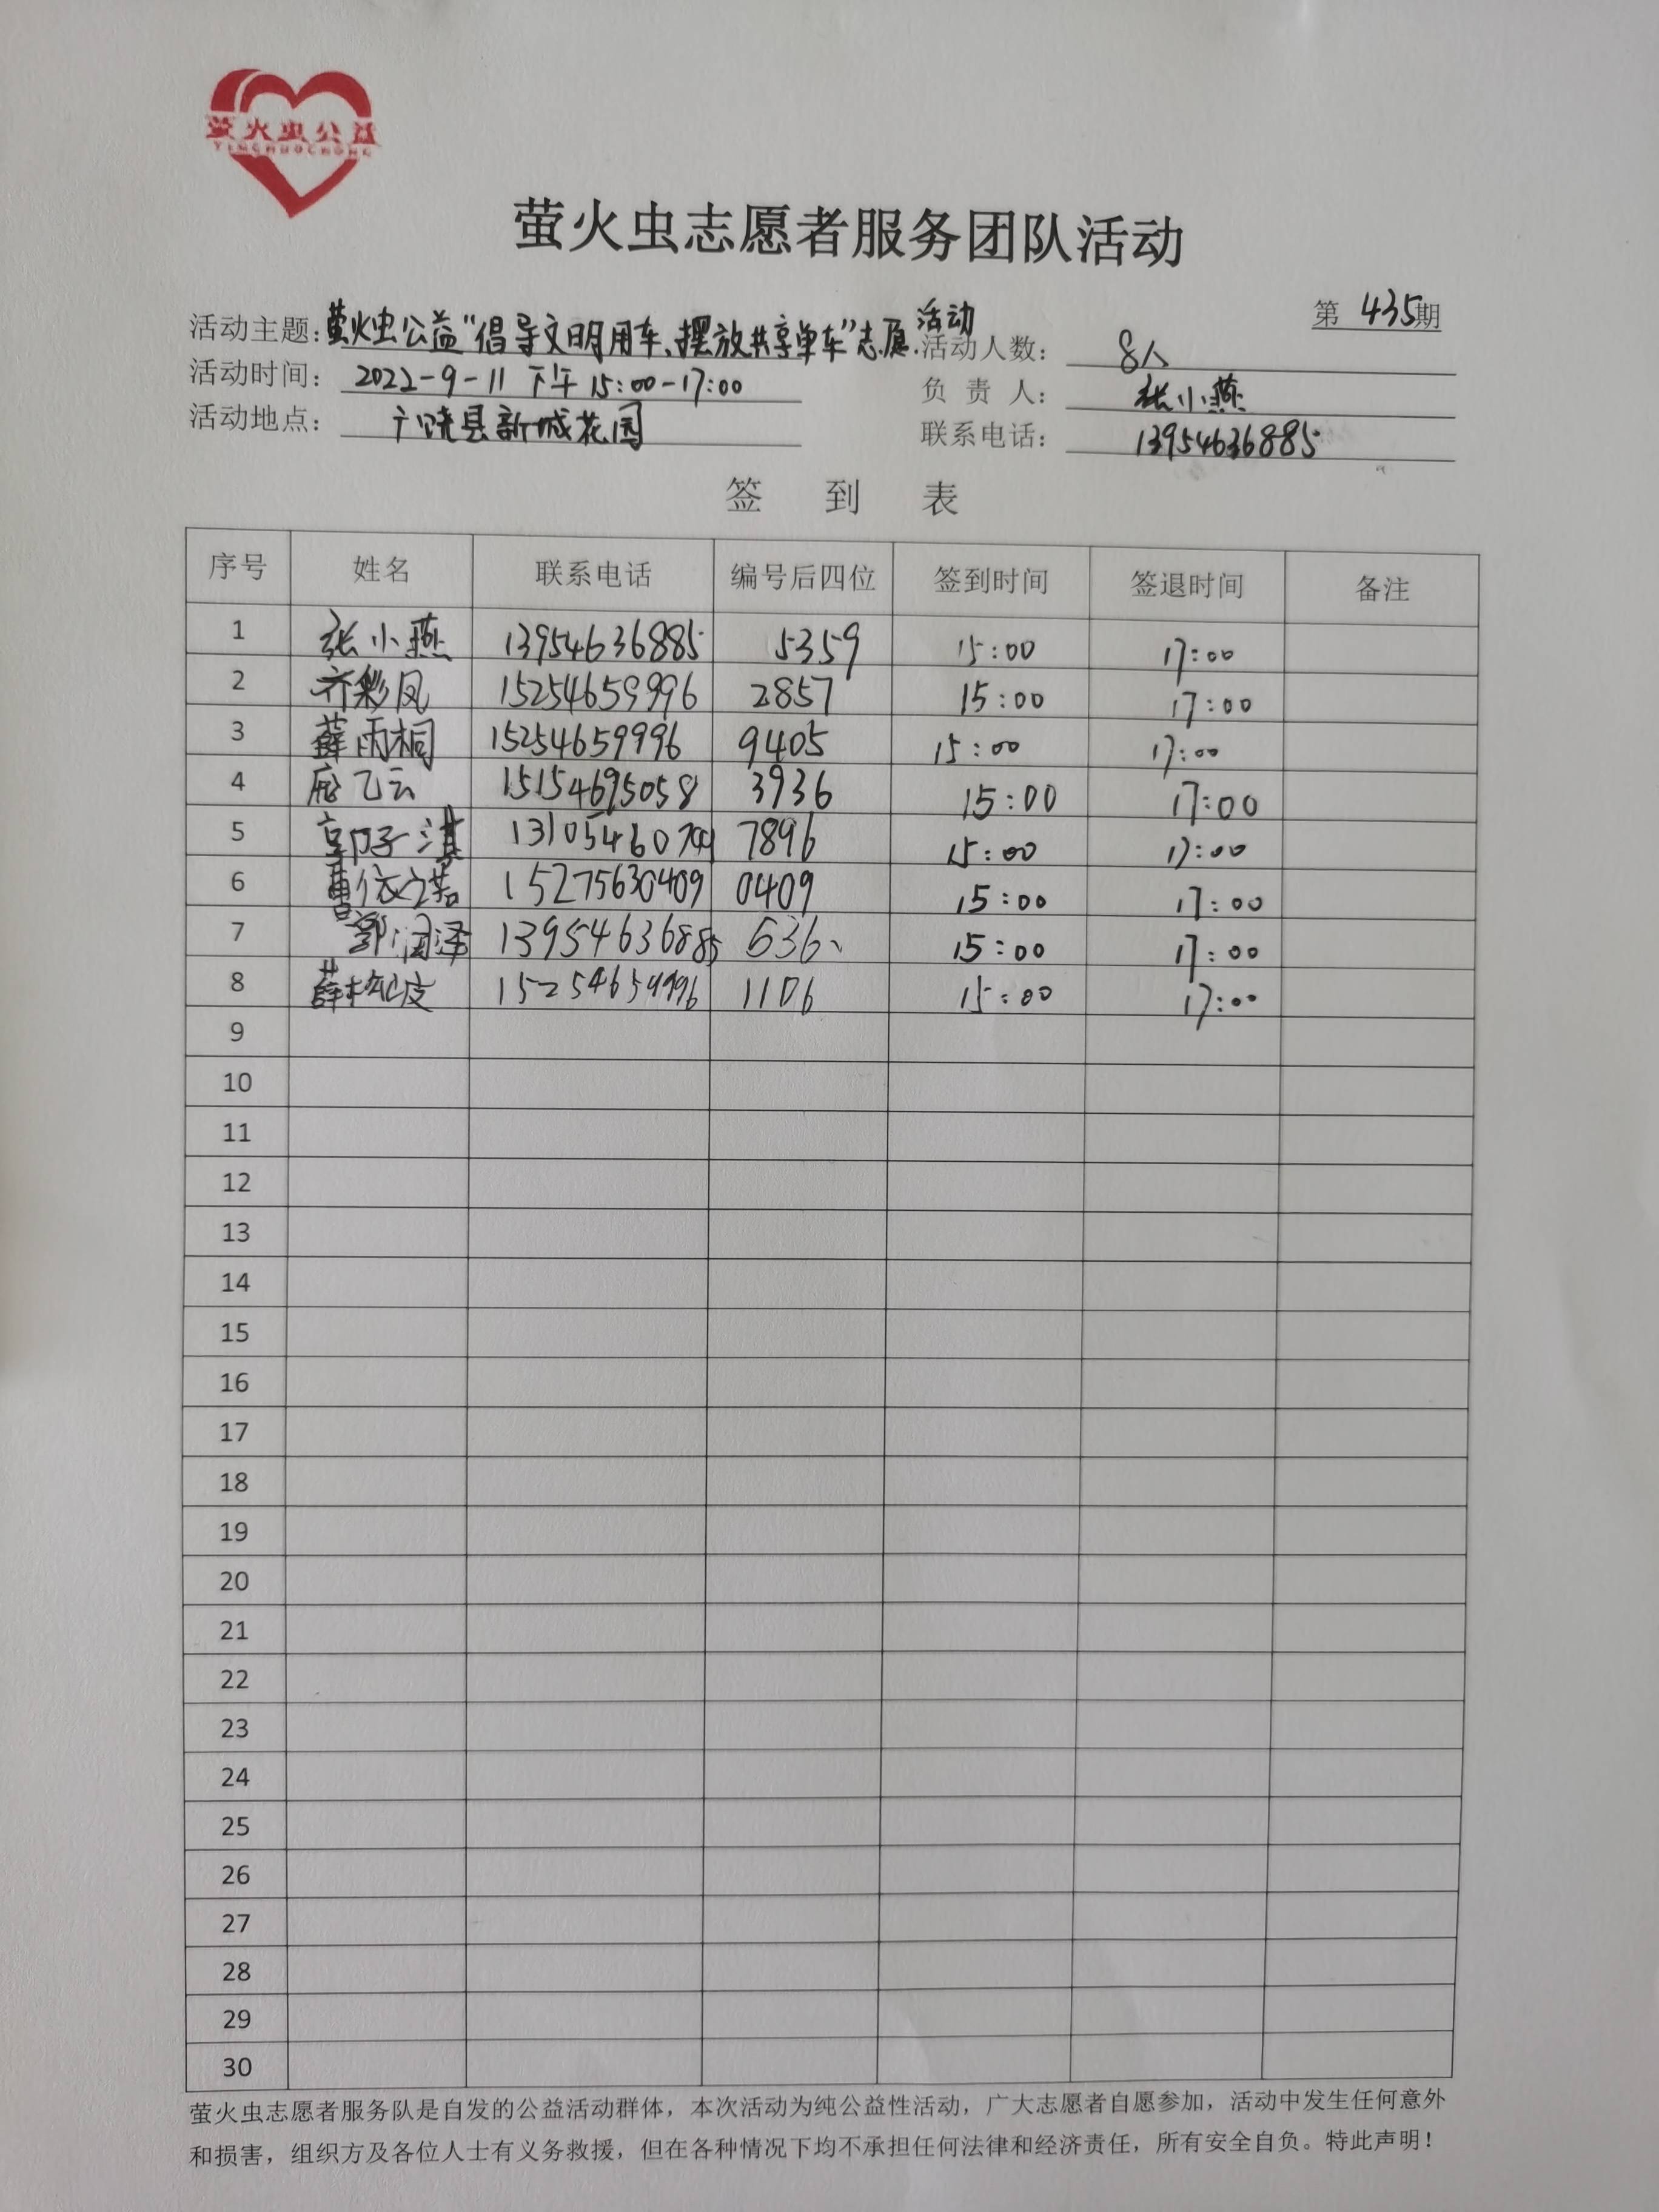 萤火虫公益
YINGHUOCHONG
萤火虫志愿者服务团队活动
第 435期
活动主题：萤火虫公益"倡导文明用车、摆放共享单车"志愿活动
活动人数： 8人
活动时间： 2022-9-11 下午 15:00-17:00
负 责 人： 张小燕
活动地点： 广饶县新城花园
联系电话： 13954636885
签 到 表
序号 姓名 联系电话 编号后四位 签到时间 签退时间 备注
1 张小燕 13954636885 5359 15:00 17:00
2 齐彩凤 15254659996 2857 15:00 17:00
3 薛雨桐 15254659996 9405 15:00 17:00
4 乙云 15154695058 3936 15:00 17:00
5 郭子淇 7896 15:00 17:00
6 曹依诺 15275630409 0409 15:00 17:00
7 润泽 13954636885 15:00 17:00
8 薛 15254659996 1106 15:00 17:00
9
10
11
12
13
14
15
16
17
18
19
20
21
22
23
24
25
26
27
28
29
30
萤火虫志愿者服务队是自发的公益活动群体，本次活动为纯公益性活动，广大志愿者自愿参加，活动中发生任何意外
和损害，组织方及各位人士有义务救援，但在各种情况下均不承担任何法律和经济责任，所有安全自负。特此声明！